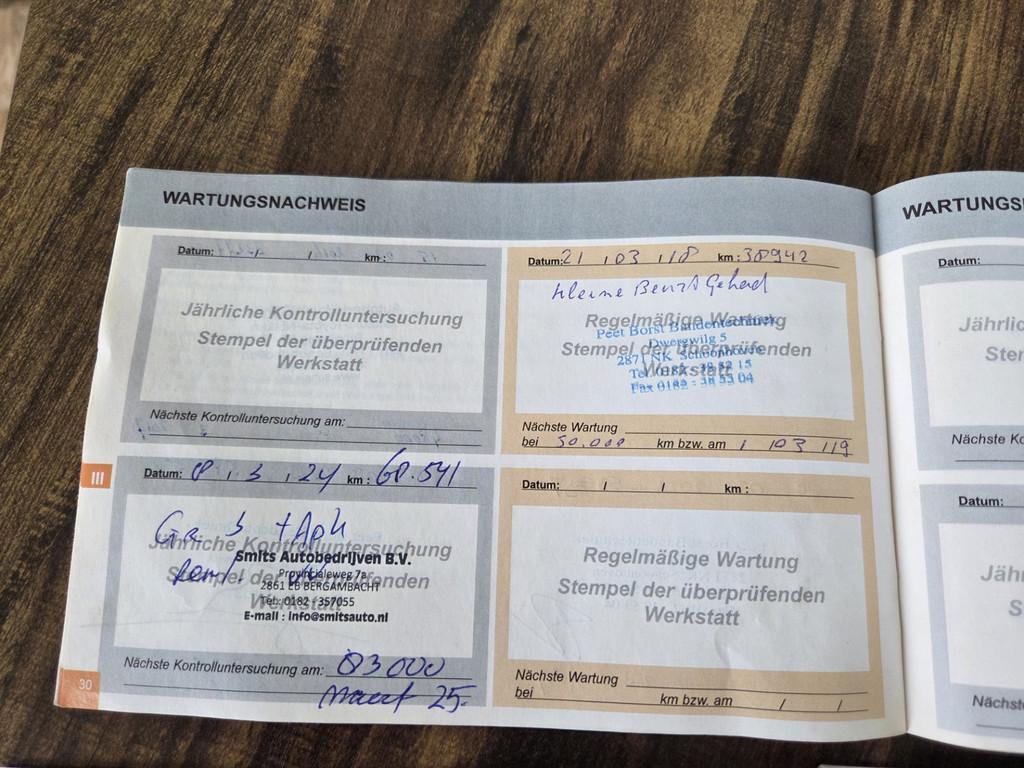 WARTUNGSNACHWEIS
Datum: / km :
Jährliche Kontrolluntersuchung
Stempel der überprüfenden
Werkstatt
Nächste Kontrolluntersuchung am:
Datum: 21 / 03 / 18 km : 38942
Kleine Beurt Gehad
Regelmäßige Wartung
Stempel der überprüfenden
Werkstatt
Peet Borst Bandentechniek
Dwergwilg 5
2871 NK Schoonhoven
Tel. 0182 - 38 52 15
Fax 0182 - 38 53 04
Nächste Wartung
bei 50.000 km bzw. am / 03 / 19
III
Datum: 8 / 3 / 24 km : 68.541
Gr. b + Apk
Jährliche Kontrolluntersuchung
Stempel der überprüfenden
Werkstatt
Smits Autobedrijven B.V.
Provincialeweg 7a
2861 EB BERGAMBACHT
Tel: 0182 - 357055
E-mail : info@smitsauto.nl
Nächste Kontrolluntersuchung am: 83000
maart 25.
30
Datum: / / km :
Regelmäßige Wartung
Stempel der überprüfenden
Werkstatt
Nächste Wartung
bei km bzw. am / /
WARTUNGS
Datum:
Jährlic
Ster
Nächste Ko
Datum:
Jähr
S
Nächst